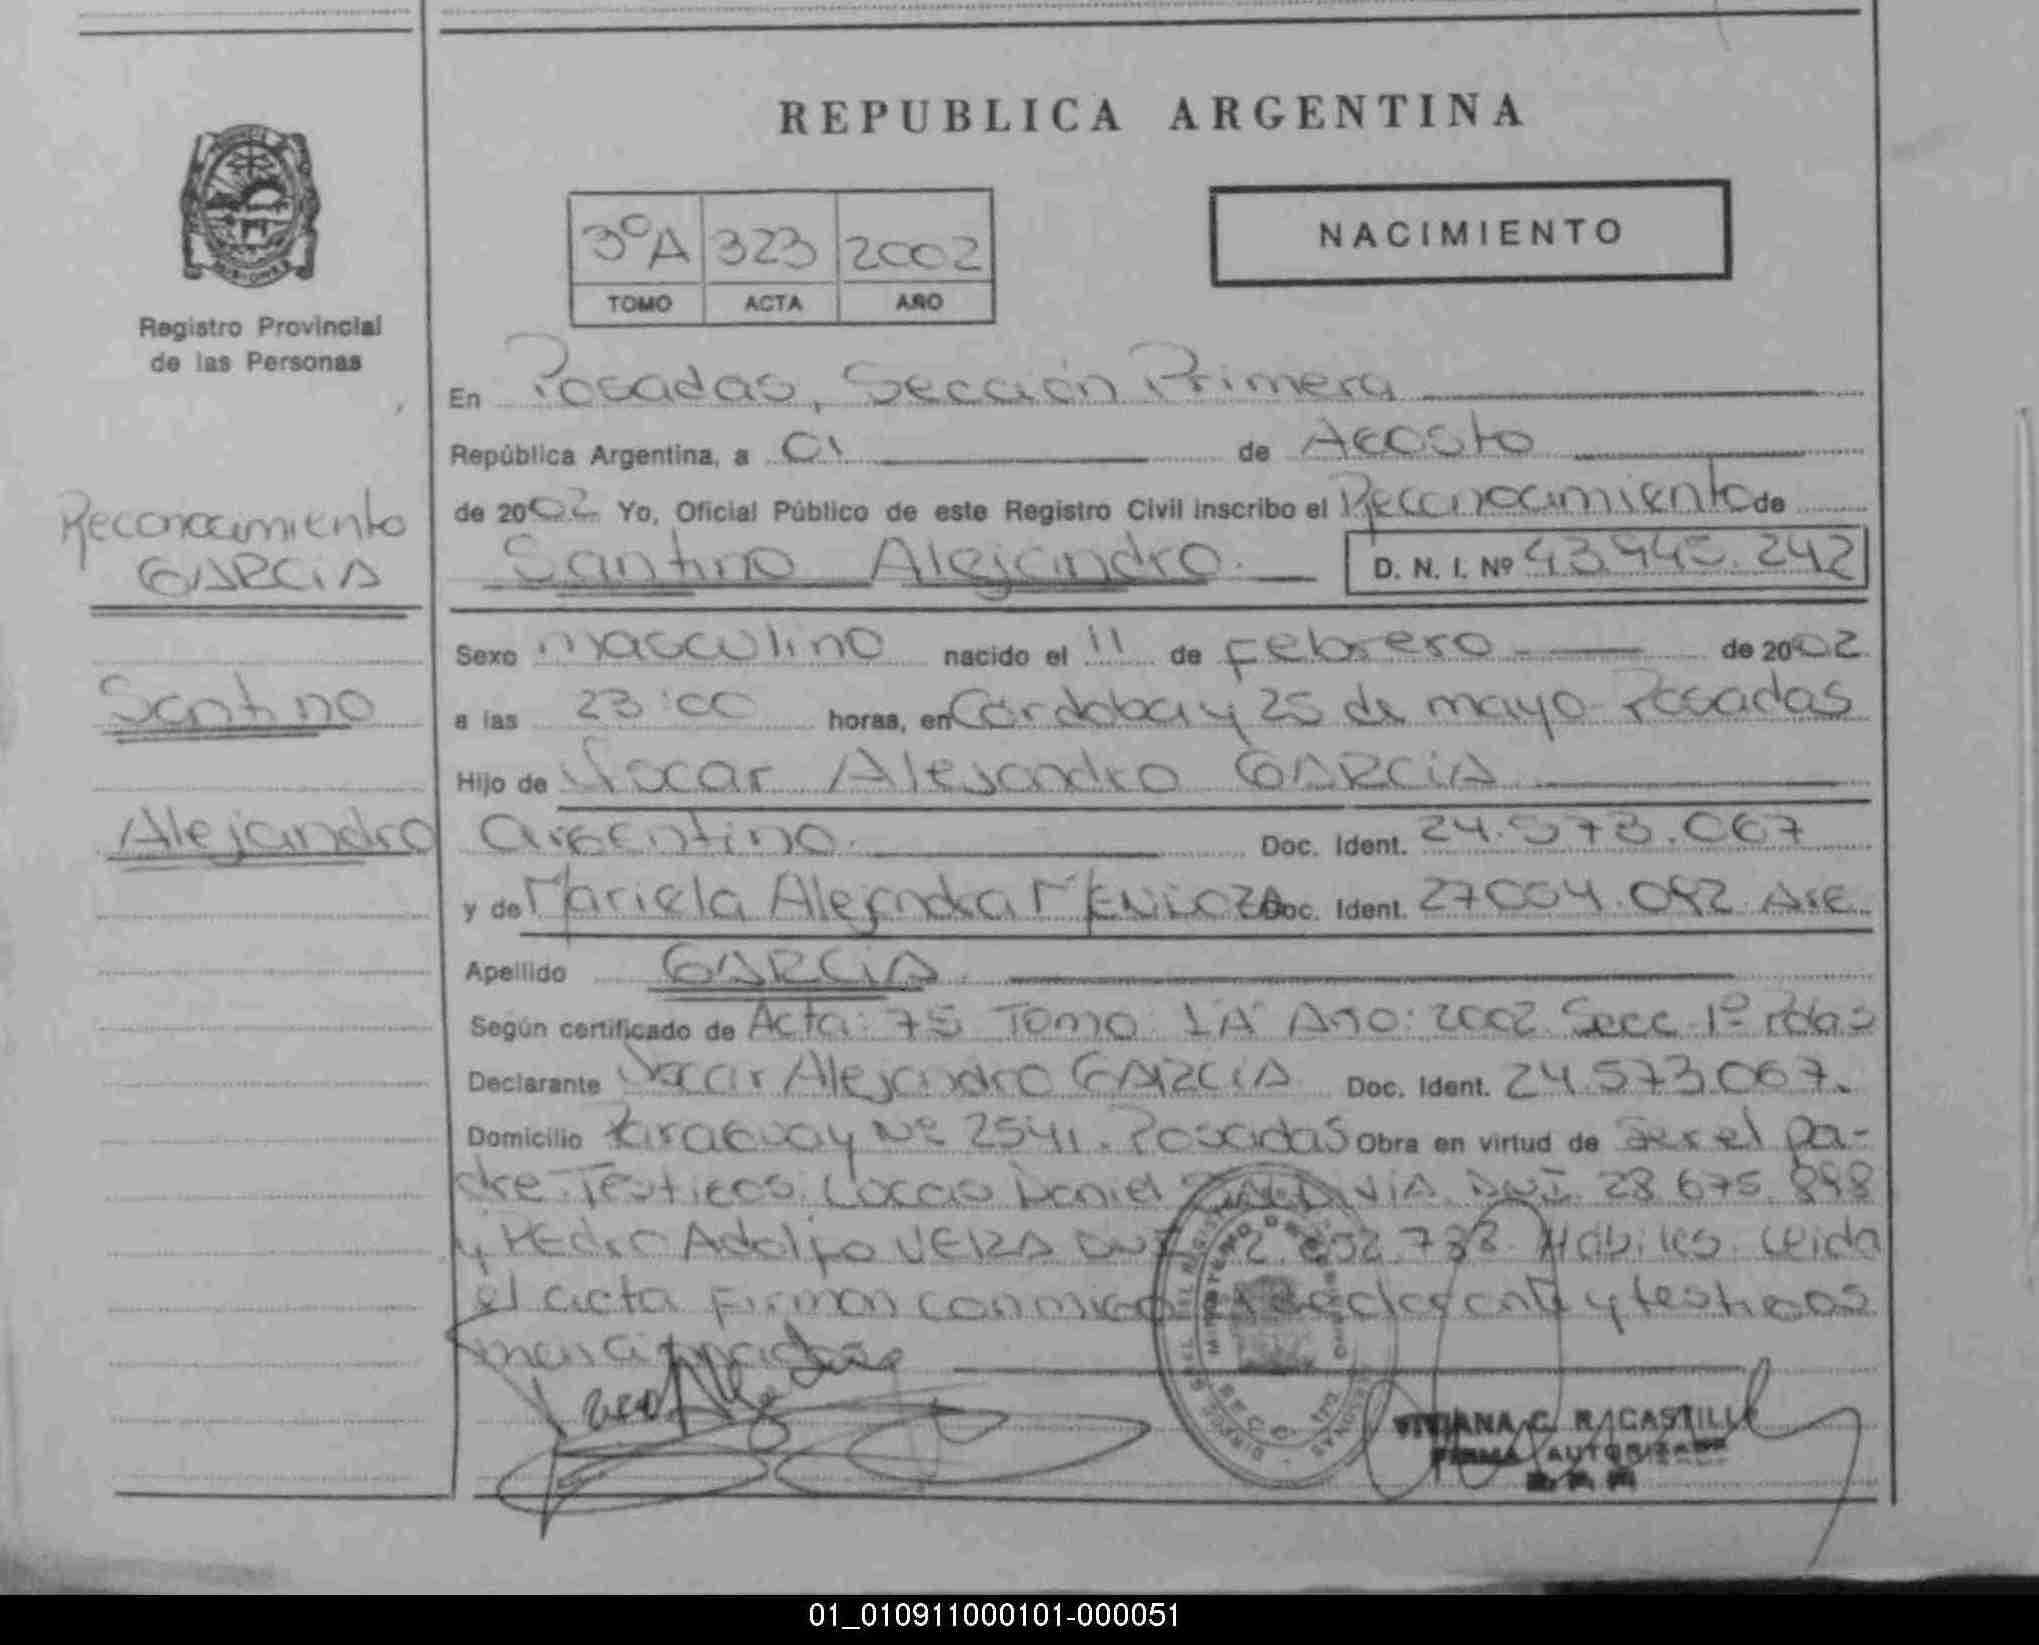 REPUBLICA ARGENTINA
NACIMIENTO
3ºA 323 2002
TOMO ACTA AÑO
Registro Provincial
de las Personas
En Posadas, Sección Primera
República Argentina, a 01 de Agosto
de 2002 Yo, Oficial Público de este Registro Civil inscribo el Reconocimiento de
Santino Alejandro. D. N. I. Nº 43.945.242
Reconocimiento
GARCIA
Santino
Alejandro
Sexo masculino nacido el 11 de Febrero de 2002
a las 23:00 horas, en Córdoba y 25 de mayo Posadas
Hijo de Oscar Alejandro GARCIA
argentino. Doc. Ident. 24.573.067
y de Mariela Alejandra MENDOZA Doc. Ident. 27004.092 Arg.
Apellido GARCIA
Según certificado de Acta: 75 Tomo 1"A" Año: 2002 Secc. 1º Pdas
Declarante Oscar Alejandro GARCIA Doc. Ident. 24.573.067.
Domicilio Paraguay Nº 2541. Posadas Obra en virtud de Ser el pa-
dre. Testigos: Daniel DNI. 28.675.898
y Pedro Adolfo VERA DNI 732. Hábiles. Leida
el acta firman conmigo declarante y testigos
mencionados
VIVIANA C. R. CASTILLO
FIRMA AUTORIZADA
01_010911000101-000051